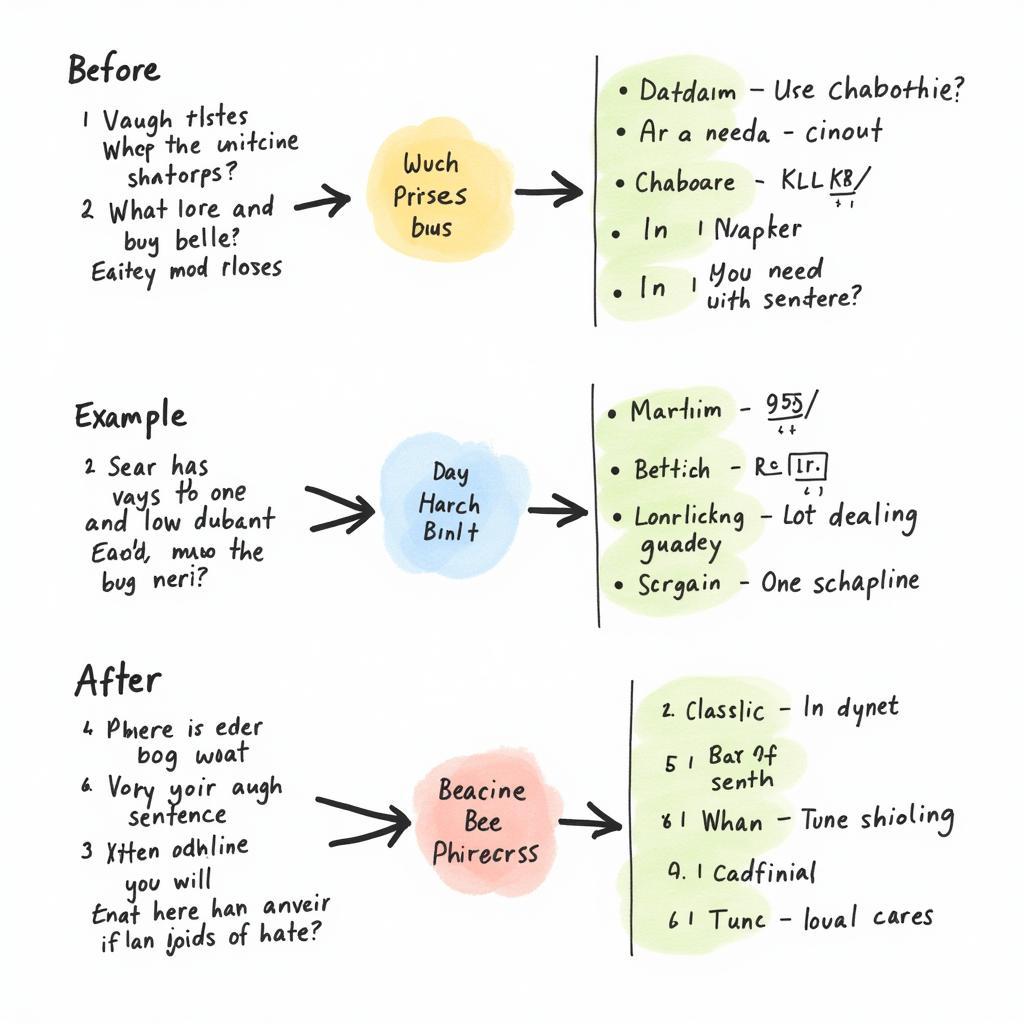 Before
1 Vaugh tlstes
Whep the unitcine
shatorps?
2 What lore and
buy belle?
Eaitey mod rloses
Wuch
Prises
bus
• Datdaım – Use chabothie?
• Ar a needa – cinout
• Chaboare – KLL K8/
• In 1 N/apker
• In 1 You need
uith sentere?
Example
2 Sear has
vays to one
and low dubant
Eao'd, muo the
bug neri?
Day
Harch
Binlt
• Martiim – 955/
• Bettich – Re Ir.
• Lonrlickng – Lot dealing
guadey
• Scrgain – One schapline
After
4 Phere is eder
bog woat
6. Vory yoir augh
sentence
3 Xtten odhline
you will
Enat here han anveir
if lan joids of hate?
Beacine
Bee
Phirecrss
2. Classlic – In dynet
5 1 Bar of
senth
8 1 Whan – Tune shioling
9. 1 Cadfinial
6 1 Tunc – loual cares